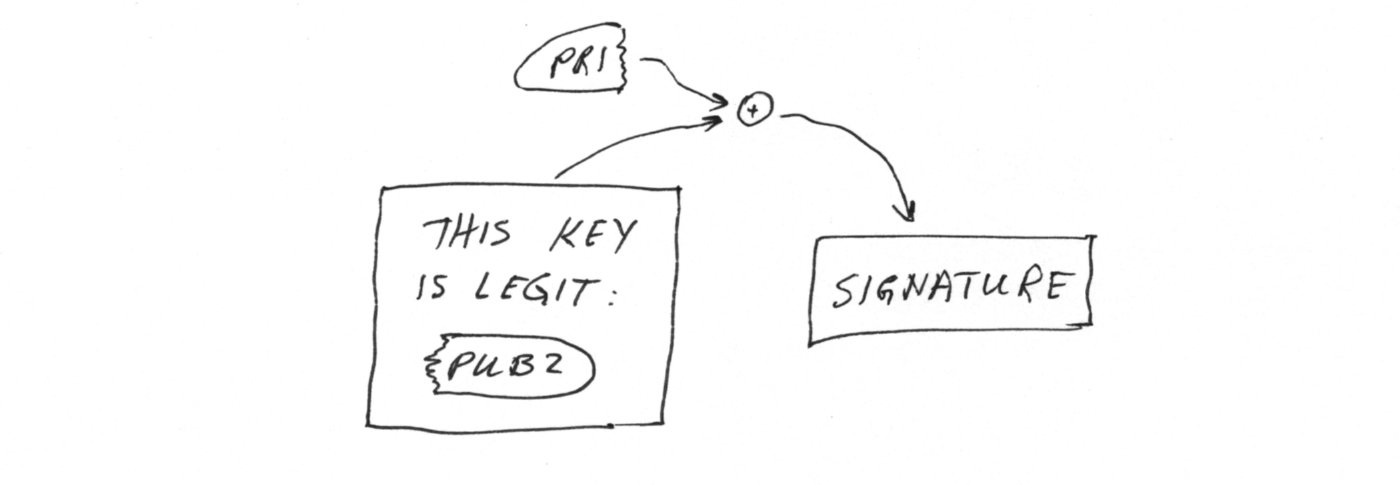 PR1
+
THIS KEY
IS LEGIT:
PUB2
SIGNATURE